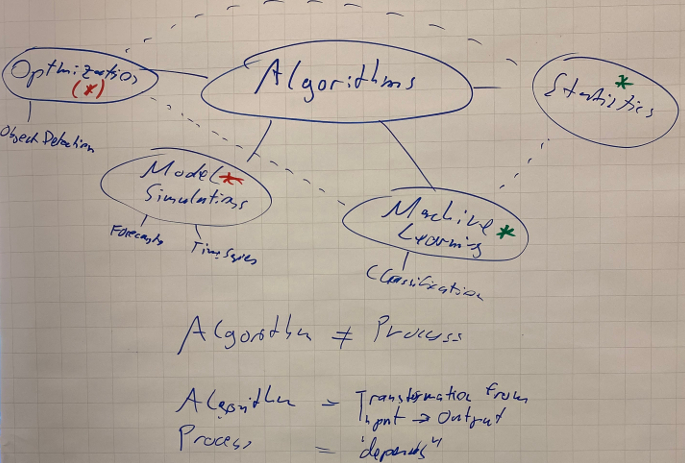 Optimization
(*)
Algorithms
*
Statistics
Object Detection
Model *
Simulations
Forecasts
Time Series
Machine
Learning *
Classification
Algorithm ≠ Process
Algorithm = Transformation from
Input → Output
Process = "depends"